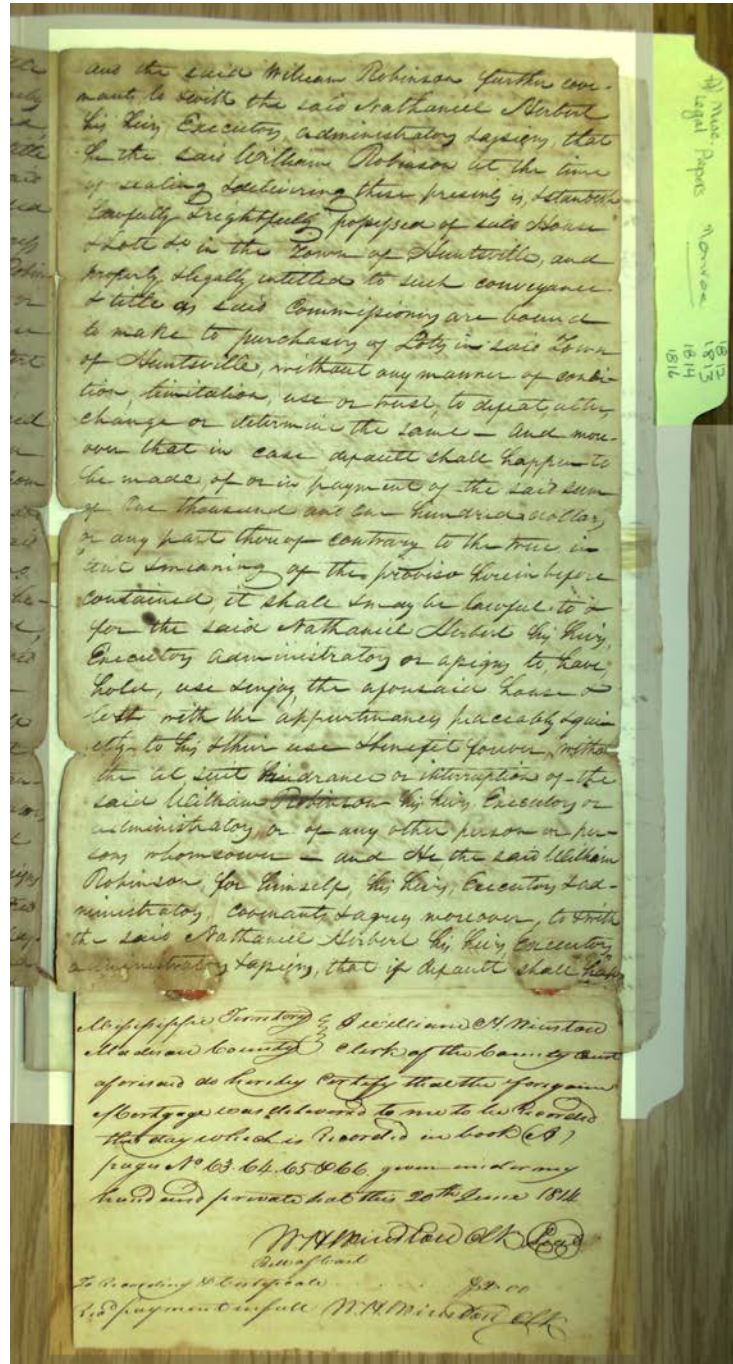 and the said William Robinson further cove-
nants to &with the said Nathaniel Herbert
his heirs Executors, administrators &assigns, that
he the said William Robinson at the time
of sealing &delivering these presents is, &standeth
lawfully &rightfully possessed of said House
& Lott &c in the Town of Huntsville, and
properly &legally intitled to such conveyance
& title as said Commissioners are bound
to make to purchasers of Lots in said Town
of Huntsville, without any manner of condi-
tion, limitation, use or trust, to defeat, alter,
change or determine the same – and more-
over that in case default shall happen to
be made of or in payment of the said sum
of One thousand and one hundred dollars,
or any part thereof contrary to the true in
tent &meaning of the proviso herein before
contained, it shall &may be lawful to &
for the said Nathaniel Herbert his heirs,
Executors administrators or assigns to, have,
hold, use &enjoy, the aforesaid house &
Lott with the appurtenances peaceably &qui-
etly to his &their use &benefit forever, witho
the let suit hindrance or interruption of the
said William Robinson his heirs, Executors or
administrators, or of any other person or per-
sons whomsoever – and He the said William
Robinson, for himself, his heirs, Executors &ad-
ministrators, covenants &agrees moreover, to &with
the said Nathaniel Herbert his heirs Executors
administrators &assigns, that if default shall hap
Mississippi Territory } I William H Winston
Madison County } Clerk of the County Court
aforesaid do hereby Certify that the foregoing
Mortgage was delivered to me to be Recorded
this day which is Recorded in book (A)
pages No 63. 64. 65 & 66, given under my
hand and private seal this 20th June 1814
W H Winston Clk Seal
Bill of Cost
To Recording & Certificate
Recd payment in full W. H. Winston Clk
A) Misc.
Legal Papers Monroe
1812
1813
1814
1816